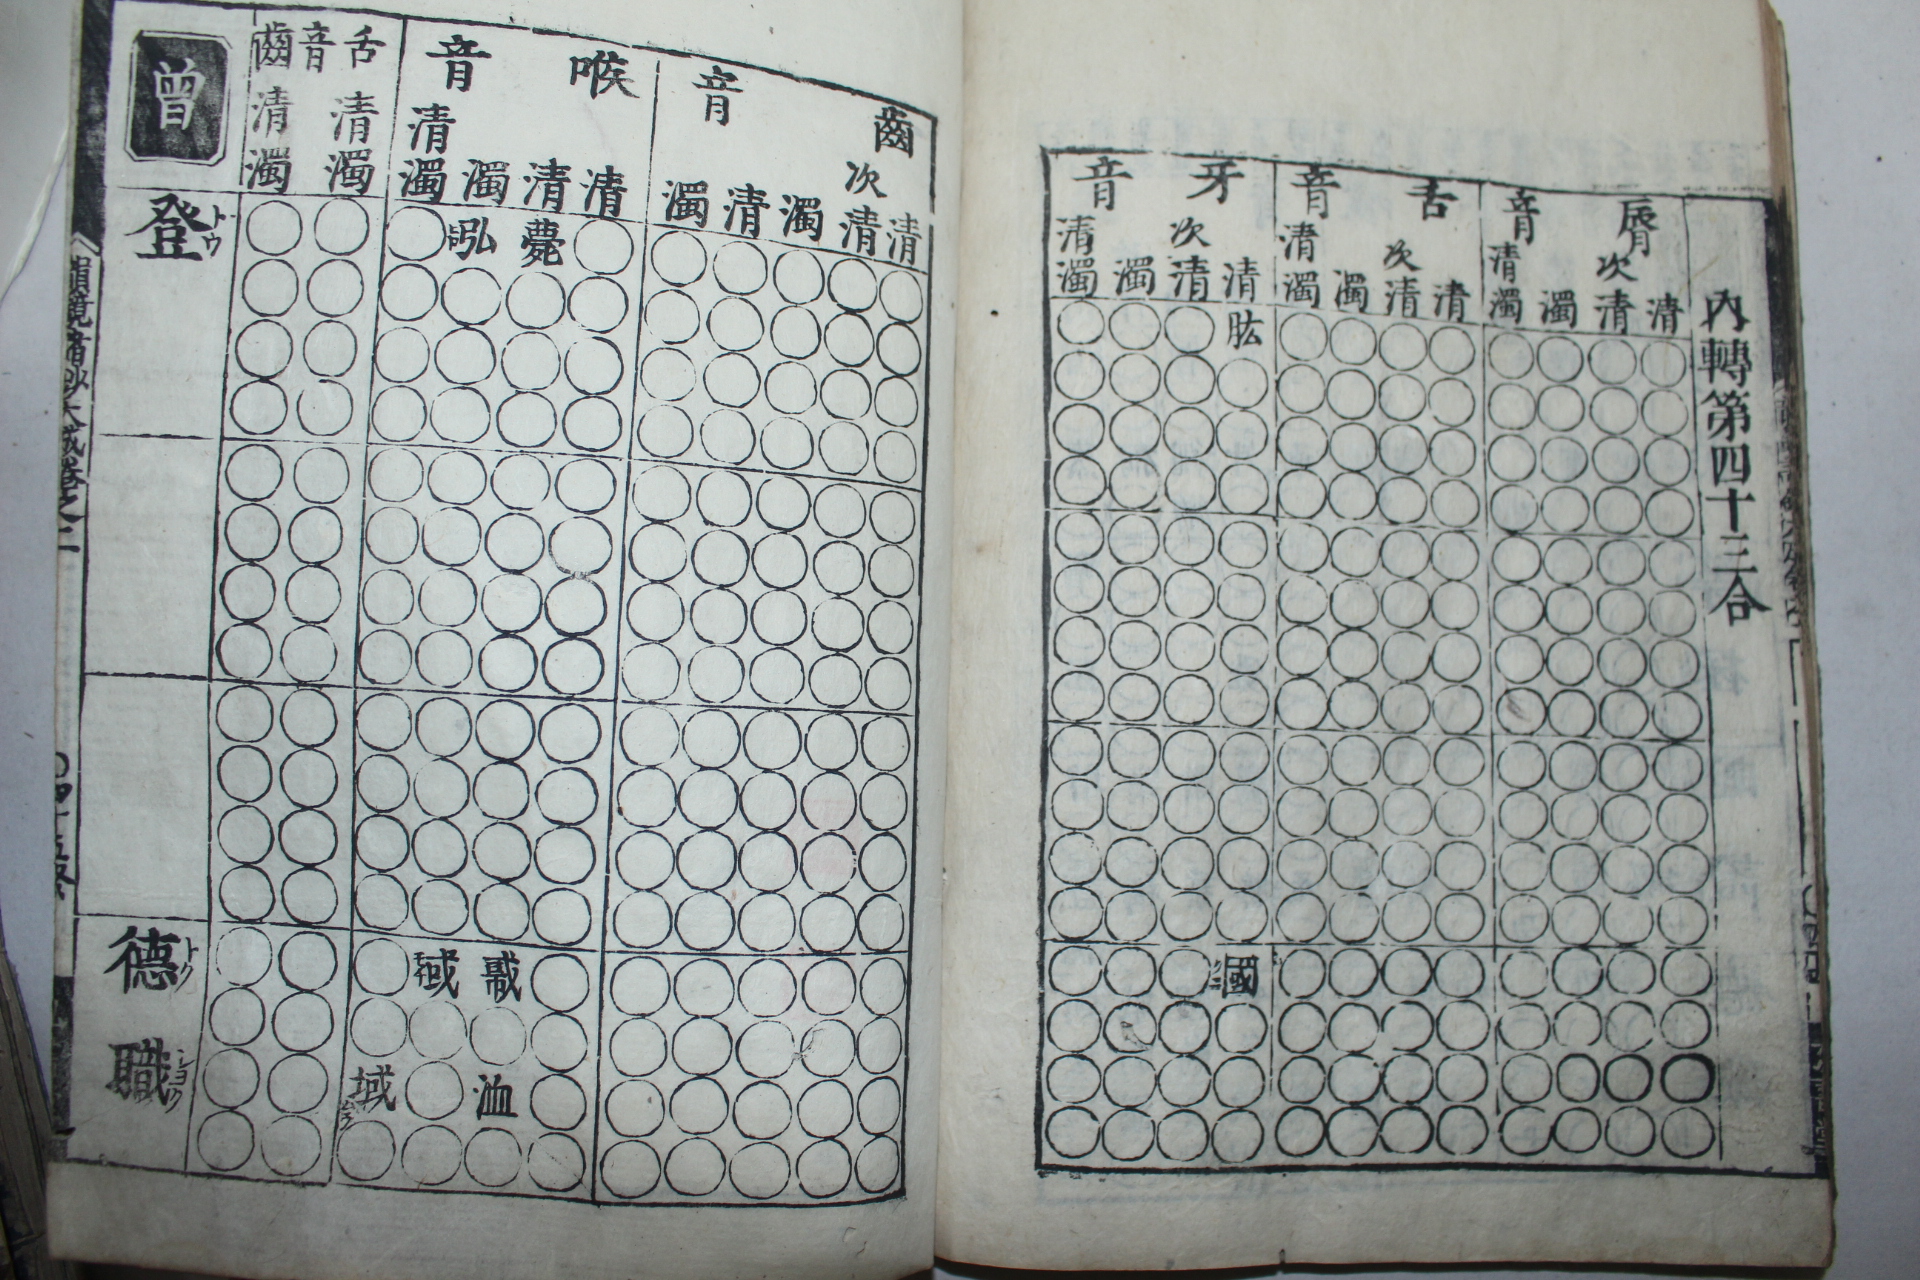 內轉第四十三合
脣音
清
次清
濁
清濁
舌音
清
次清
濁
清濁
牙音
清
次清
濁
清濁
肱
國
齒音
清
次清
濁
清
濁
喉音
清
清
濁
清濁
薨
弘
或
洫
域
舌齒音
清濁
清濁
曾
登
トウ
德
トク
職
ショク